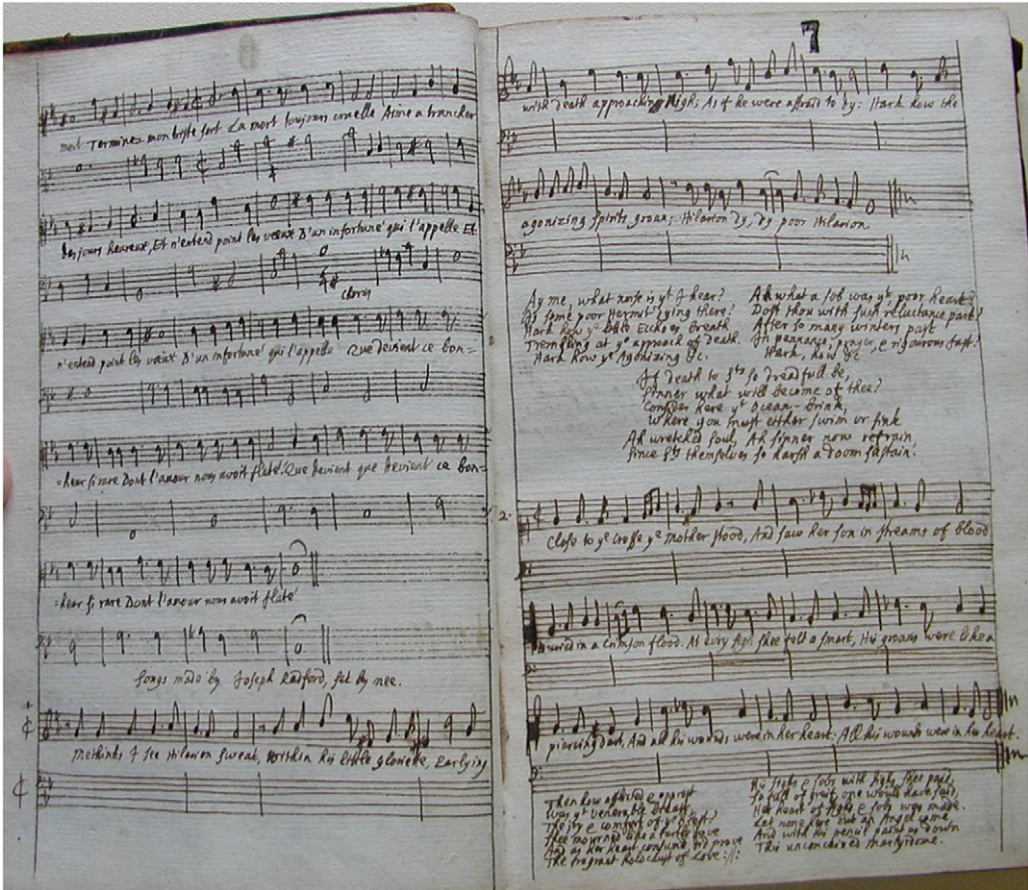 mort Termine mon triste sort La mort toujours cruelle Aime a trancher
des jours heureux, Et n'entend point les vœux D'un infortuné qui l'appelle Et
chorus
n'entend point les vœux D'un infortuné qui l'appelle Que devient ce bon=
=heur si rare Dont l'amour nous avoit flaté. Que devient que devient ce bon=
=heur si rare Dont l'amour nous avoit flaté
Songs made by Joseph Radford, set by mee.
Methinks I see Hilarion sweat, Within his little gloriette, Early
7
with death approaching Nigh; As if he were affraid to dy: Hark how the
agonizing spirits groan; Hilarion dy, dy poor Hilarion
Ay me, what noise is yt I hear?
Is some poor Hermit dying there?
Hark how ye Eccho's breath
Trembling at ye approach of death.
Hark how ye Agonizing &c.
Ah what a sob was yt, poor heart?
Dost thou with such reluctance part?
After so many winters past
In pennance, prayer, & rigourous fast?
Hark, how &c
If death to Sts so dreadfull be,
Sinner what will become of thee?
Consider here ye Ocean-brink,
Where you must either swim or sink
Ah wretched soul, Ah sinner now refrain,
Since Sts themselves so harsh a doom sustain.
2.
Close to ye Crosse ye mother stood, And saw her son in streams of blood
Buried in a Crimson flood. At every sigh shee felt a smart, His groans were like a
piercing dart, And all his wounds were in her heart. All his wounds were in her heart.
Then how afflicted & opprest
Was yt venerable breast,
The joy & comfort of ye
Shee mourned like a turtle dove
And as her heart did prove
The fragrant Holocaust of Love ://:
His sighs & sobs with sighs shee paid,
So full of greif, one would have said,
Her heart of sighs & sobs was made.
Let none dare but an Angel come
And with his pencil paint us down
This unconceived martyrdome.